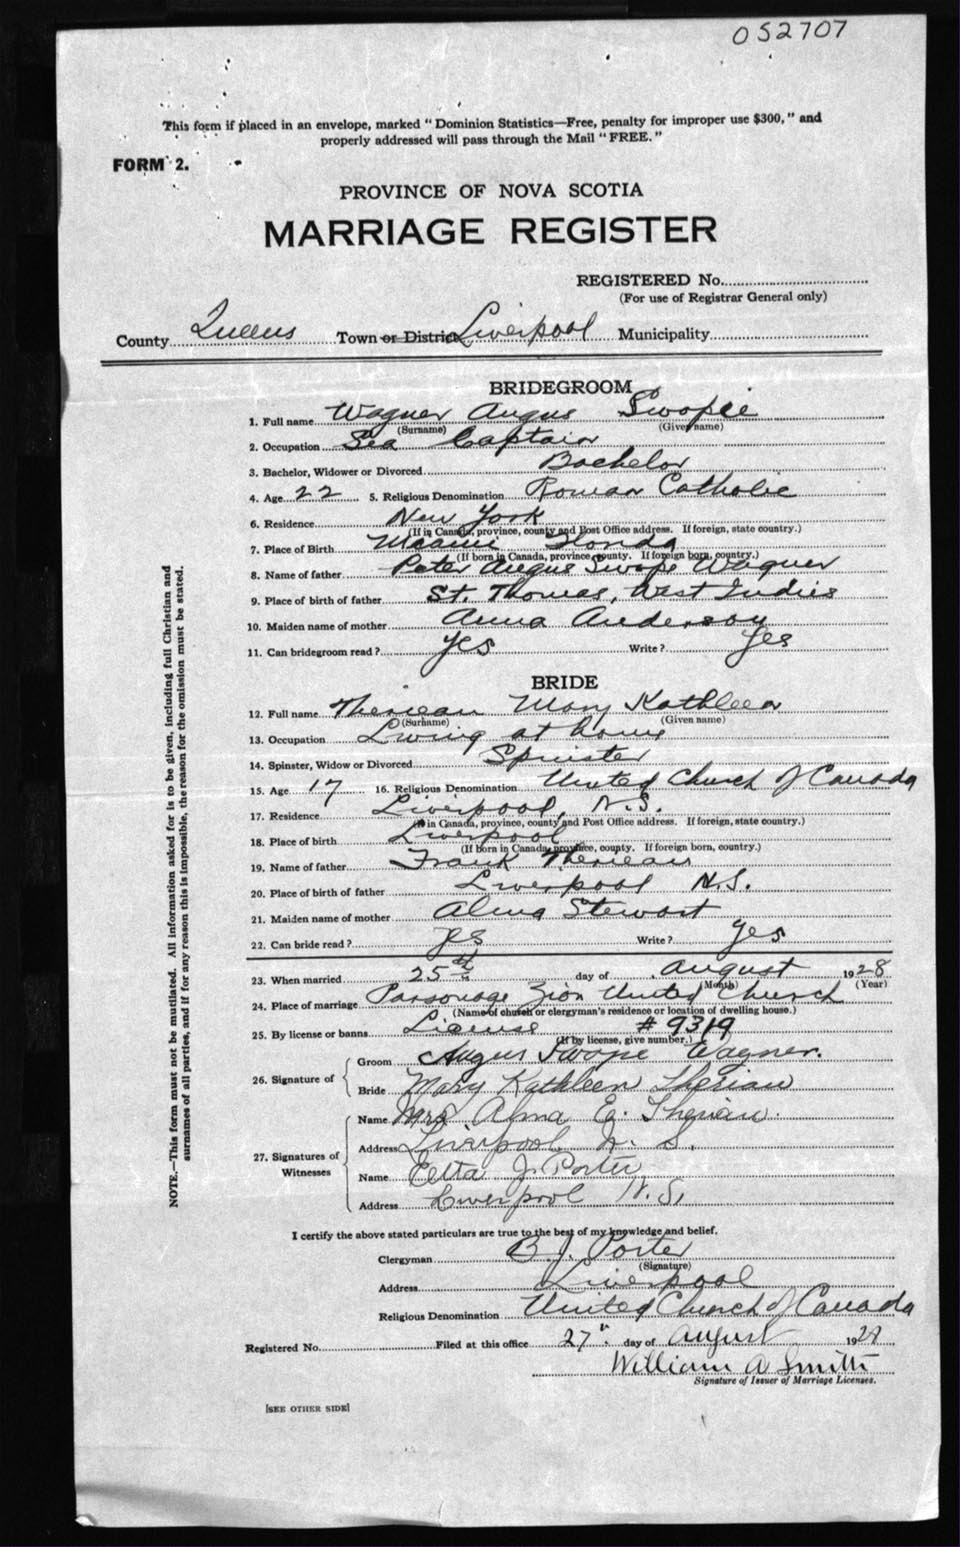 052707
This form if placed in an envelope, marked " Dominion Statistics—Free, penalty for improper use $300," and
properly addressed will pass through the Mail "FREE."
FORM 2.
PROVINCE OF NOVA SCOTIA
MARRIAGE REGISTER
REGISTERED No.
(For use of Registrar General only)
County Queens Town or District Liverpool Municipality
BRIDEGROOM
1. Full name Wagner Angus Swopee
(Surname) (Given name)
2. Occupation Sea Captain
3. Bachelor, Widower or Divorced Bachelor
4. Age 22 5. Religious Denomination Roman Catholic
6. Residence New York
(If in Canada, province, county and Post Office address. If foreign, state country.)
7. Place of Birth Miami
(If born in Canada, province county. If foreign born, country.)
8. Name of father Peter Angus Swope Wagner
9. Place of birth of father St. Thomas, West Indies
10. Maiden name of mother Anna Anderson
11. Can bridegroom read? Yes Write? Yes
BRIDE
12. Full name Therieau Mary Kathleen
(Surname) (Given name)
13. Occupation Living at home
14. Spinster, Widow or Divorced Spinster
15. Age 17 16. Religious Denomination United Church of Canada
17. Residence Liverpool, N.S.
(If in Canada, province, county and Post Office address. If foreign, state country.)
18. Place of birth Liverpool
(If born in Canada, province, county. If foreign born, country.)
19. Name of father Frank Therieau
20. Place of birth of father Liverpool N.S.
21. Maiden name of mother Alma Stewart
22. Can bride read? yes Write? yes
23. When married 25th day of August 1928
(Month) (Year)
24. Place of marriage Parsonage Zion United Church
(Name of church or clergyman's residence or location of dwelling house.)
25. By license or banns License # 9319
(If by license, give number.)
26. Signature of
Groom Angus Swope Wagner.
Bride Mary Kathleen Therian
27. Signatures of Witnesses
Name Mrs Alma E. Therian.
Address Liverpool N. S.
Name Etta J. Porter
Address Liverpool N.S.
I certify the above stated particulars are true to the best of my knowledge and belief.
Clergyman B. J. Porter
(Signature)
Address Liverpool
Religious Denomination United Church of Canada
Registered No. Filed at this office 27th day of August 1928
William A Smith
Signature of Issuer of Marriage Licenses.
[SEE OTHER SIDE]
NOTE.—This form must not be mutilated. All information asked for is to be given, including full Christian and
surnames of all parties, and if for any reason this is impossible, the reason for the omission must be stated.